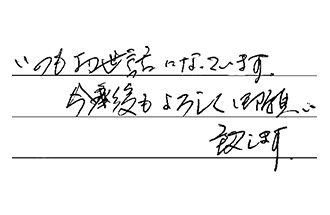 いつもお世話になっています。
今後もよろしくお願い
致します。